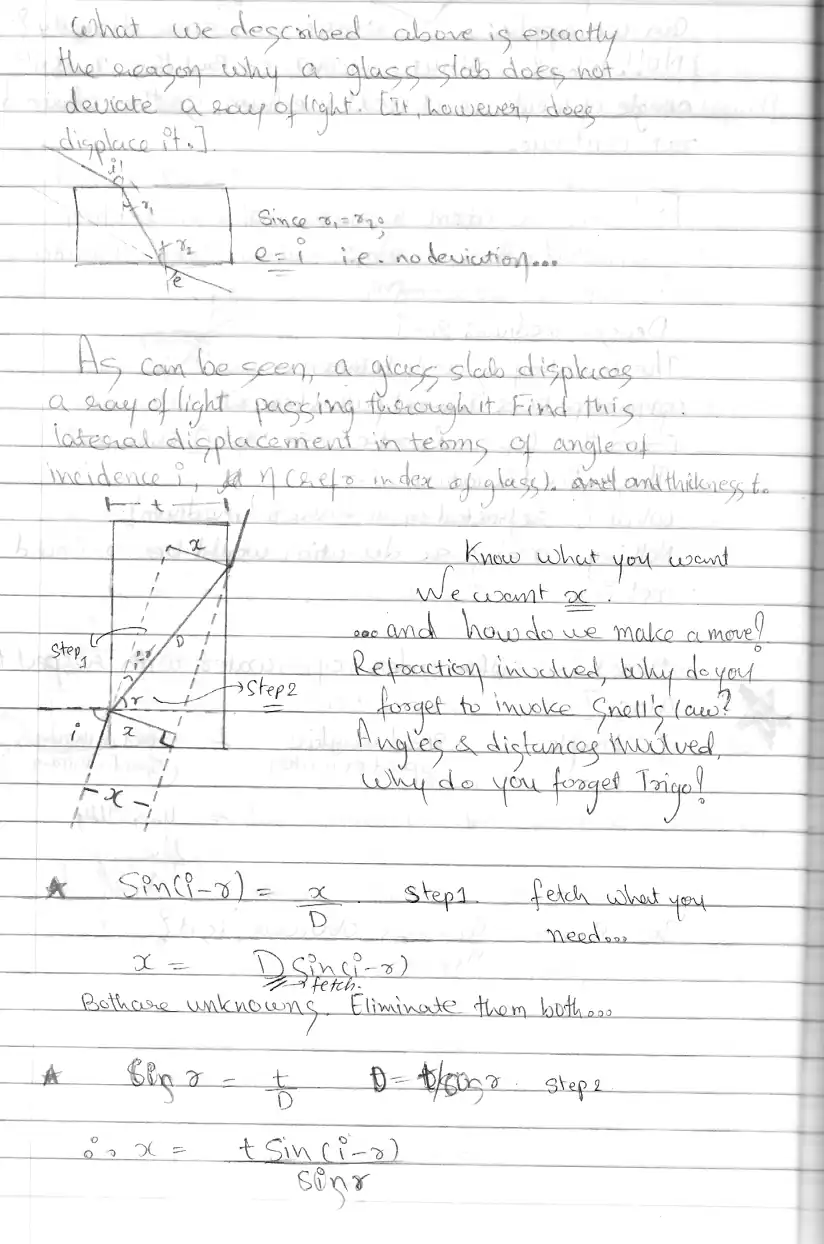 What we described above is exactly
the reason why a glass slab does not
deviate a ray of light. [It, however, does
displace it.]
i
r₁
r₂
e
Since r₁ = r₂,
e = i i.e. no deviation...
As can be seen, a glass slab displaces
a ray of light passing through it. Find this
lateral displacement in terms of angle of
incidence i, η (ref index of glass). and thickness t.
t
x
Know what you want
We want x.
...and how do we make a move?
Step 1
D
i-r
Refraction involved, why do you
r
Step 2
forget to invoke Snell's law?
i
x
Angles & distances involved,
why do you forget Trigo?
x
Sin(i-r) = x/D Step 1. fetch what you
need...
x = D Sin(i-r)
fetch.
Both are unknowns. Eliminate them both...
r = t/D D = t/ r Step 2
∴ x = t Sin(i-r)
Sin r